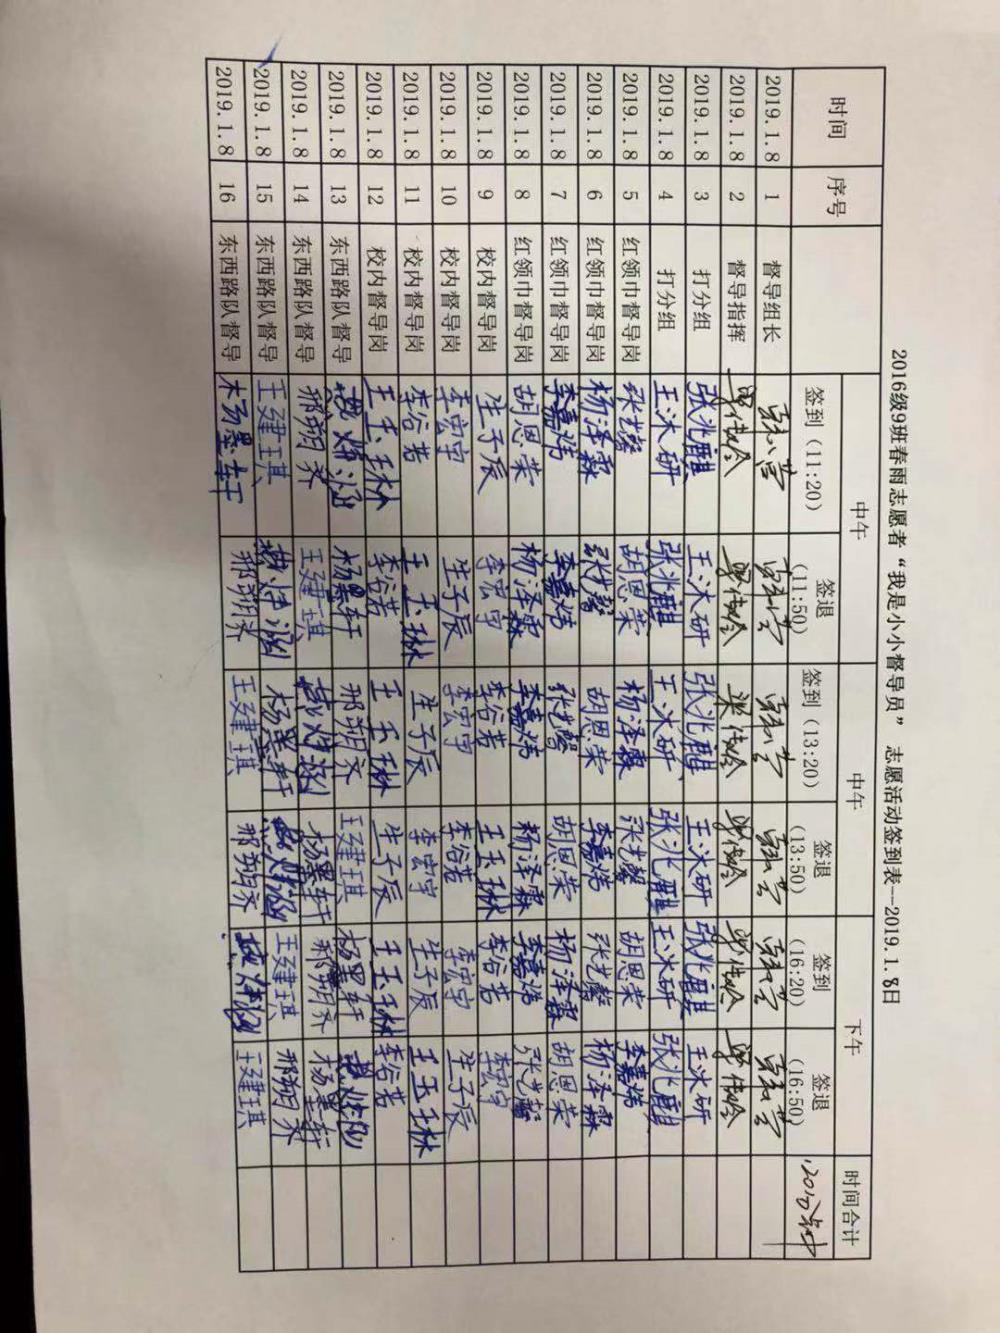 2016级9班春雨志愿者“我是小小督导员” 志愿活动签到表--2019.1.8日
时间 序号 中午 中午 下午 时间合计
签到(11:20) 签退(11:50) 签到(13:20) 签退(13:50) 签到(16:20) 签退(16:50) 120分钟
2019.1.8 1 督导组长
2019.1.8 2 督导指挥
2019.1.8 3 打分组 张兆麒 王沐研 张兆麒 王沐研 张兆麒 王沐研
2019.1.8 4 打分组 王沐研 张兆麒 王沐研 张兆麒 王沐研 张兆麒
2019.1.8 5 红领巾督导岗 张艺馨 胡恩荣 杨泽霖 张艺馨 胡恩荣 李嘉炜
2019.1.8 6 红领巾督导岗 杨泽霖 张艺馨 胡恩荣 李嘉炜 张艺馨 杨泽霖
2019.1.8 7 红领巾督导岗 李嘉炜 李嘉炜 张艺馨 胡恩荣 杨泽霖 胡恩荣
2019.1.8 8 红领巾督导岗 胡恩荣 杨泽霖 李嘉炜 杨泽霖 李嘉炜 张艺馨
2019.1.8 9 校内督导岗 生子辰 李宏宇 李谷若 王玉琳 李谷若 李宏宇
2019.1.8 10 校内督导岗 李宏宇 生子辰 李宏宇 李谷若 李宏宇 生子辰
2019.1.8 11 校内督导岗 李谷若 王玉琳 生子辰 李宏宇 生子辰 王玉琳
2019.1.8 12 校内督导岗 王玉琳 李谷若 王玉琳 生子辰 王玉琳 李谷若
2019.1.8 13 东西路队督导 杨墨轩 邢朔齐 王建琪 杨墨轩
2019.1.8 14 东西路队督导 邢朔齐 王建琪 杨墨轩 邢朔齐 杨墨轩
2019.1.8 15 东西路队督导 王建琪 杨墨轩 王建琪 邢朔齐
2019.1.8 16 东西路队督导 杨墨轩 邢朔齐 王建琪 邢朔齐 王建琪